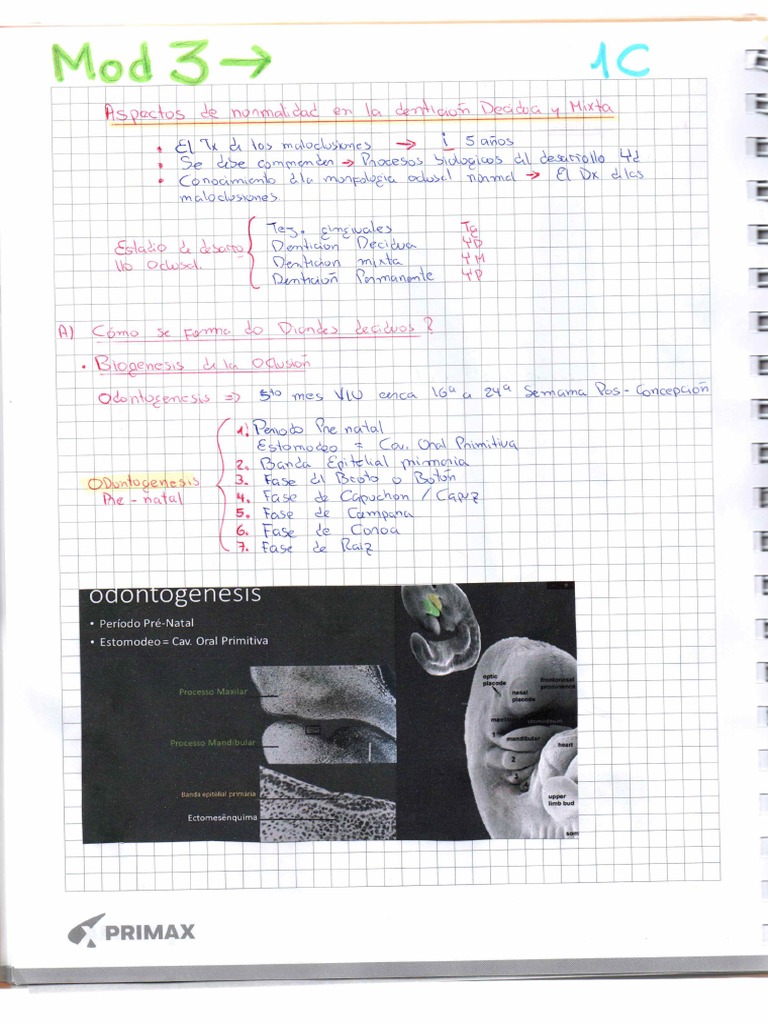 Mod 3 → 1C
Aspectos de normalidad en la dentición Decidua y Mixta
• El Tx de los maloclusiones → i 5 años
• Se debe comprender → Procesos biologicos del desarrollo
• Conocimiento d la morfologia oclusal normal → El Dx d las
maloclusiones
Estadio de desarro
llo Oclusal.
Tej. gingivales Tg
Dentición Decidua
Denticion mixta
Dentición Permanente
A) Cómo se forma do Diendes deciduos?
• Biogenesis de la Oclusión
Odontogenesis => 5to mes VIU cerca 16ª a 24ª Semama Pos-Concepción
Odontogenesis
Pre-natal
1. Periodo Pre natal
Estomodeo = Cav. Oral Primitiva
2. Banda Epitelial primaria
3. Fase del Broto o Botón
4. Fase de Capuchon / Capuz
5. Fase de Campana
6. Fase de Coroa
7. Fase de Raiz
odontogenesis
• Período Pré-Natal
• Estomodeo = Cav. Oral Primitiva
Processo Maxilar
Processo Mandibular
Banda epitelial primária
Ectomesênquima
optic
placode
nasal
placode
frontonasal
prominence
stomodeum
1
mandibular
heart
2
3
upper
limb bud
som
PRIMAX